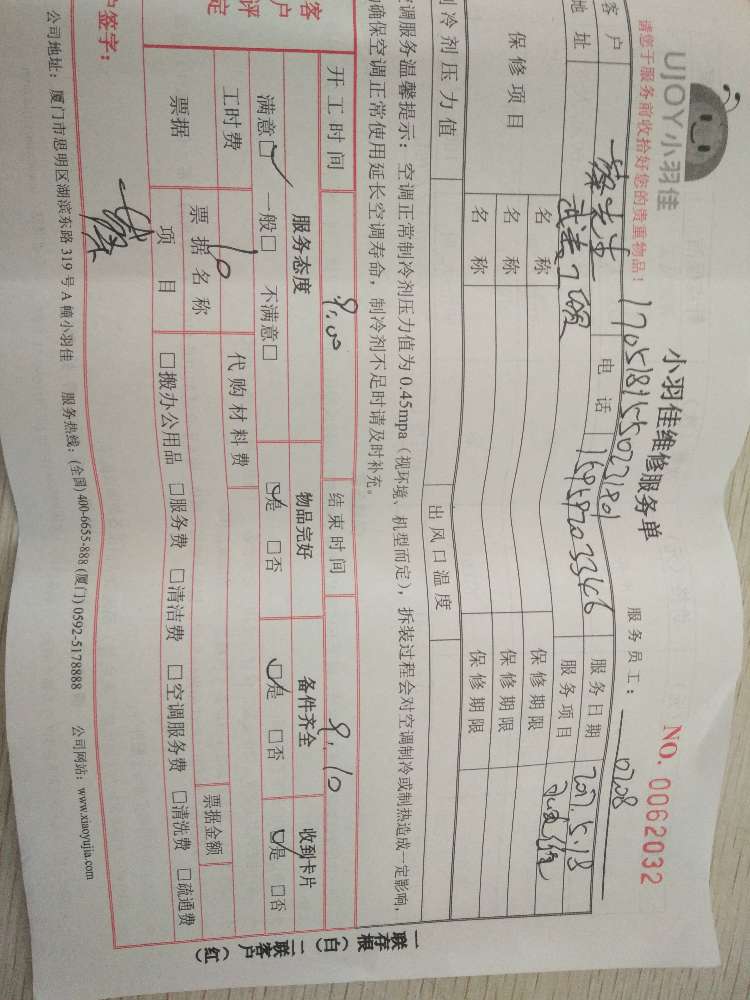 UJOY小羽佳
小羽佳维修服务单
NO. 0062032
请您于服务前收拾好您的贵重物品!
服务员工: 0208
客户 电话 服务日期 2017.5.18
地址 服务项目
保修项目 名称 保修期限
名称 保修期限
名称 保修期限
制冷剂压力值 出风口温度
调服务温馨提示: 空调正常制冷剂压力值为 0.45mpa (视环境、机型而定), 拆装过程会对空调制冷或制热造成一定影响,
确保空调正常使用延长空调寿命, 制冷剂不足时请及时补充。
开工时间 9:00 结束时间 9:10
客户评定 服务态度 物品完好 备件齐全 收到卡片
满意□ 一般□ 不满意□ □是 □否 □是 □否 □是 □否
工时费 10 代购材料费
票据 票据名称 票据金额
项目 □搬办公用品 □服务费 □清洁费 □空调服务费 □清洗费 □疏通费
户签字:
公司地址: 厦门市思明区湖滨东路 319 号 A 幢小羽佳 服务热线: (全国) 400-6655-888 (厦门) 0592-5178888 公司网站: www.xiaoyujia.com
一联存根(白) 二联客户(红)